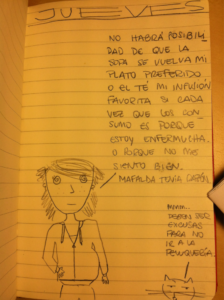 JUEVES
NO HABRÁ POSIBILI
DAD DE QUE LA
SOPA SE VUELVA MI
PLATO PREFERIDO,
O EL TÉ MI INFUSIÓN
FAVORITA SI CADA
VEZ QUE LOS CON
SUMO ES PORQUE
ESTOY ENFERMUCHA.
O PORQUE NO ME
SIENTO BIEN.
MAFALDA TENÍA RAZÓN.
MMM...
PONEN
EXCUSAS
PARA NO
IR A LA
PELUQUERÍA.